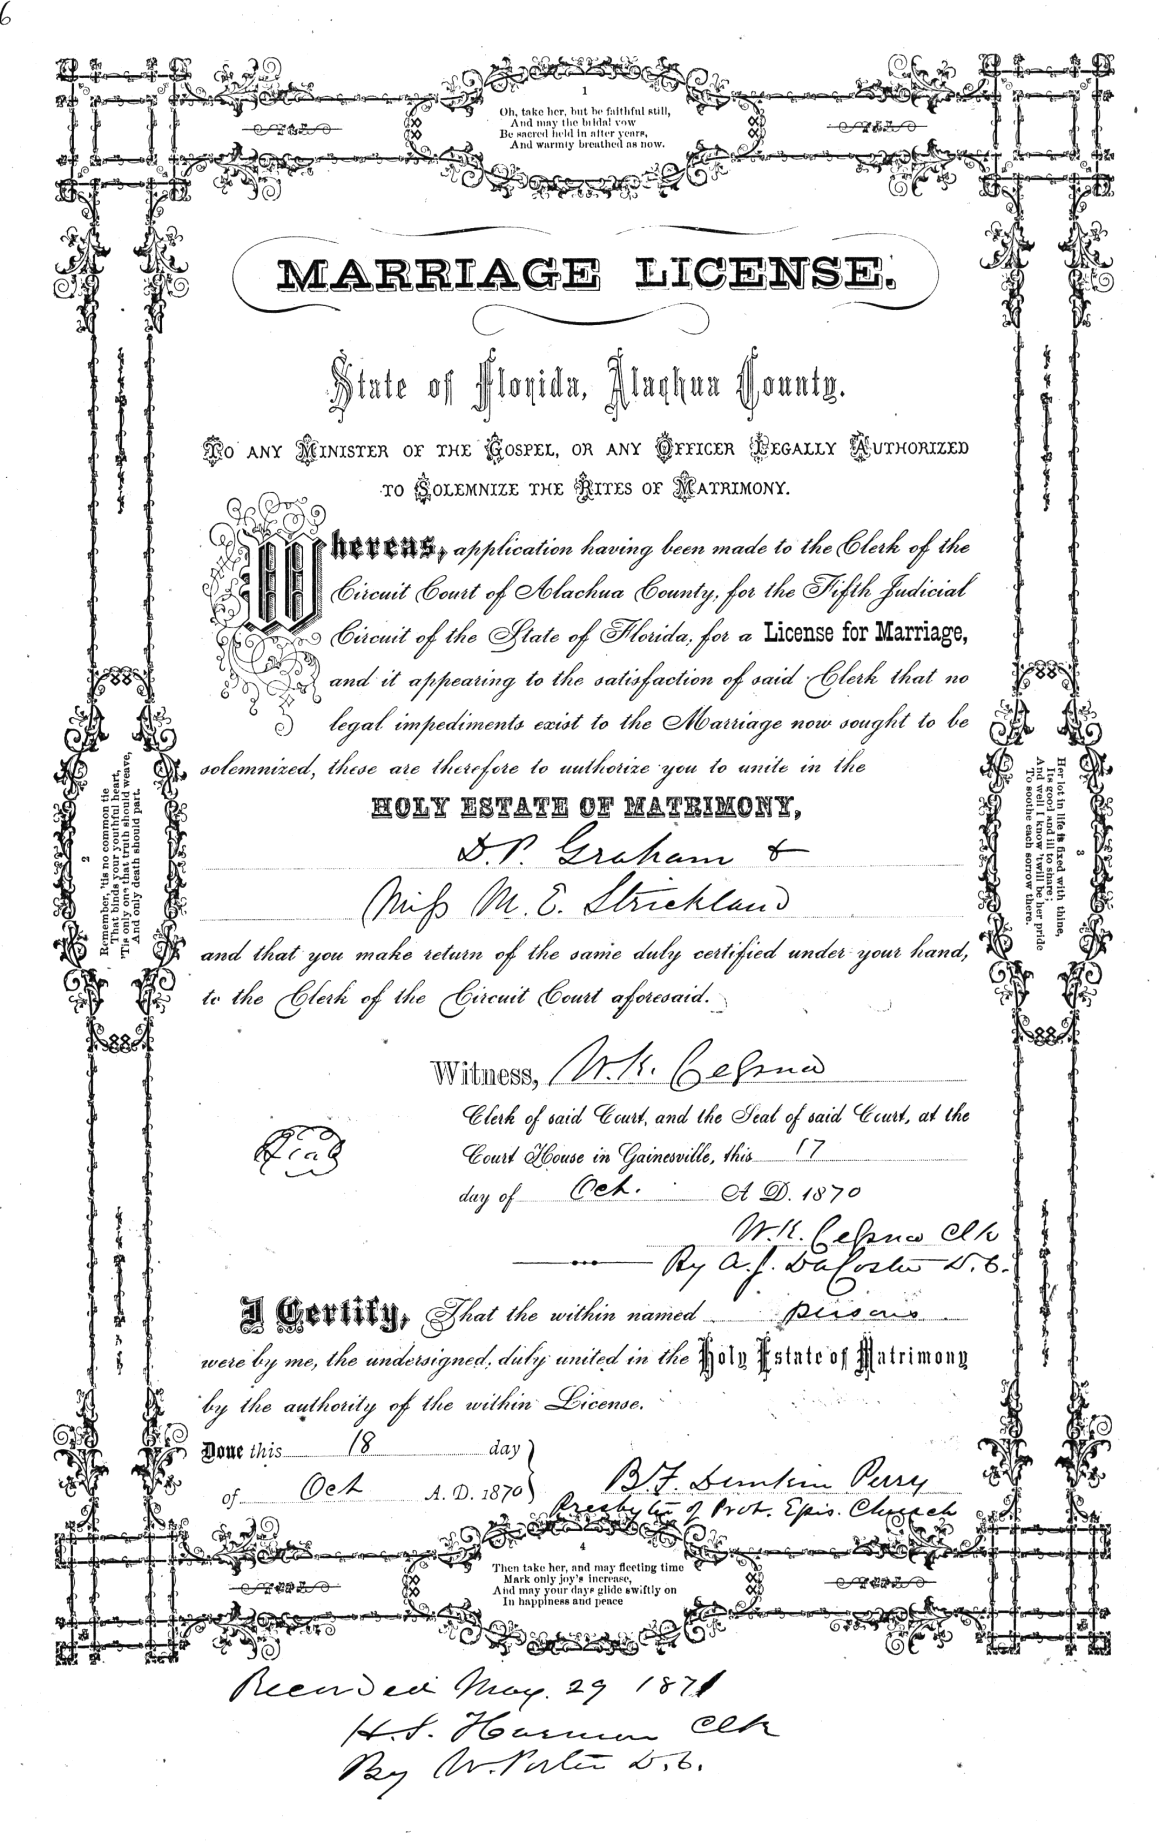 6
1
Oh, take her, but be faithful still,
And may the bridal vow
Be sacred held in after years,
And warmly breathed as now.
MARRIAGE LICENSE.
State of Florida, Alachua County.
TO ANY MINISTER OF THE GOSPEL, OR ANY OFFICER LEGALLY AUTHORIZED
TO SOLEMNIZE THE RITES OF MATRIMONY.
Whereas, application having been made to the Clerk of the
Circuit Court of Alachua County, for the Fifth Judicial
Circuit of the State of Florida, for a License for Marriage,
and it appearing to the satisfaction of said Clerk that no
legal impediments exist to the Marriage now sought to be
solemnized, these are therefore to authorize you to unite in the
HOLY ESTATE OF MATRIMONY,
D. P. Graham &
Miss M. E. Strickland
and that you make return of the same duly certified under your hand,
to the Clerk of the Circuit Court aforesaid.
2
Remember, 'tis no common tie
That binds your youthful heart,
'Tis only one that truth should weave,
And only death should part.
3
Her lot in life is fixed with thine,
Its good and ill to share;
And well I know 'twill be her pride
To soothe each sorrow there.
Witness, W. K. Cessna
Clerk of said Court, and the Seal of said Court, at the
Seal
Court House in Gainesville, this 17
day of Oct. A D. 1870
W. K. Cessna Clk
By A. J. DaCosta D. C.
I Certify, That the within named persons
were by me, the undersigned, duly united in the Holy Estate of Matrimony
by the authority of the within License.
Done this 18 day
of Oct A. D. 1870
B. F. Dunkin Perry
Presbyter of Prot. Epis. Church
4
Then take her, and may fleeting time
Mark only joy's increase,
And may your days glide swiftly on
In happiness and peace
Recorded May. 29 1871
H. S. Harmon Clk
By W. Porter D. C.